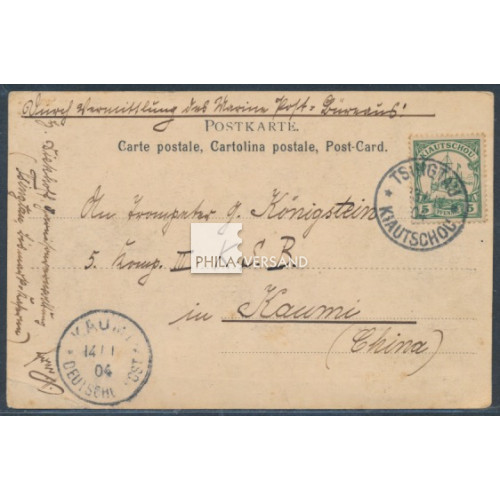 Durch Vermittlung des Marine Post-Büreaus!
POSTKARTE.
Carte postale, Cartolina postale, Post-Card.
KIAUTSCHOU
5 PFENNIG 5
TSINGTAU
KIAUTSCHOU
An Trompeter G. Königstein
PHILA VERSAND
5. Komp. III. S. B.
in Kaumi
(China)
KAUMI
14/1
04
DEUTSCHE